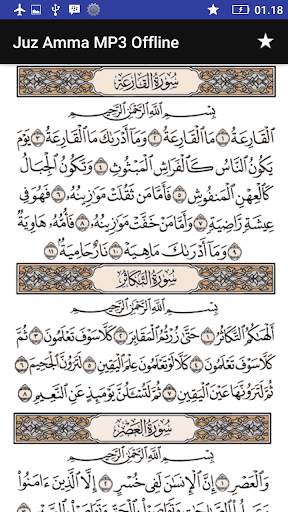 01.18
Juz Amma MP3 Offline
سُورَةُ القَارِعَة
بِسْمِ اللَّهِ الرَّحْمَٰنِ الرَّحِيمِ
الْقَارِعَةُ ١ مَا الْقَارِعَةُ ٢ وَمَا أَدْرَاكَ مَا الْقَارِعَةُ ٣ يَوْمَ
يَكُونُ النَّاسُ كَالْفَرَاشِ الْمَبْثُوثِ ٤ وَتَكُونُ الْجِبَالُ
كَالْعِهْنِ الْمَنفُوشِ ٥ فَأَمَّا مَن ثَقُلَتْ مَوَازِينُهُ ٦ فَهُوَ فِي
عِيشَةٍ رَّاضِيَةٍ ٧ وَأَمَّا مَنْ خَفَّتْ مَوَازِينُهُ ٨ فَأُمُّهُ هَاوِيَةٌ
٩ وَمَا أَدْرَاكَ مَا هِيَهْ ١٠ نَارٌ حَامِيَةٌ ١١
سُورَةُ التَّكَاثُر
بِسْمِ اللَّهِ الرَّحْمَٰنِ الرَّحِيمِ
أَلْهَاكُمُ التَّكَاثُرُ ١ حَتَّىٰ زُرْتُمُ الْمَقَابِرَ ٢ كَلَّا سَوْفَ تَعْلَمُونَ ٣ ثُمَّ
كَلَّا سَوْفَ تَعْلَمُونَ ٤ كَلَّا لَوْ تَعْلَمُونَ عِلْمَ الْيَقِينِ ٥ لَتَرَوُنَّ الْجَحِيمَ
٦ ثُمَّ لَتَرَوُنَّهَا عَيْنَ الْيَقِينِ ٧ ثُمَّ لَتُسْأَلُنَّ يَوْمَئِذٍ عَنِ النَّعِيمِ ٨
سُورَةُ العَصْر
بِسْمِ اللَّهِ الرَّحْمَٰنِ الرَّحِيمِ
وَالْعَصْرِ ١ إِنَّ الْإِنسَانَ لَفِي خُسْرٍ ٢ إِلَّا الَّذِينَ آمَنُوا